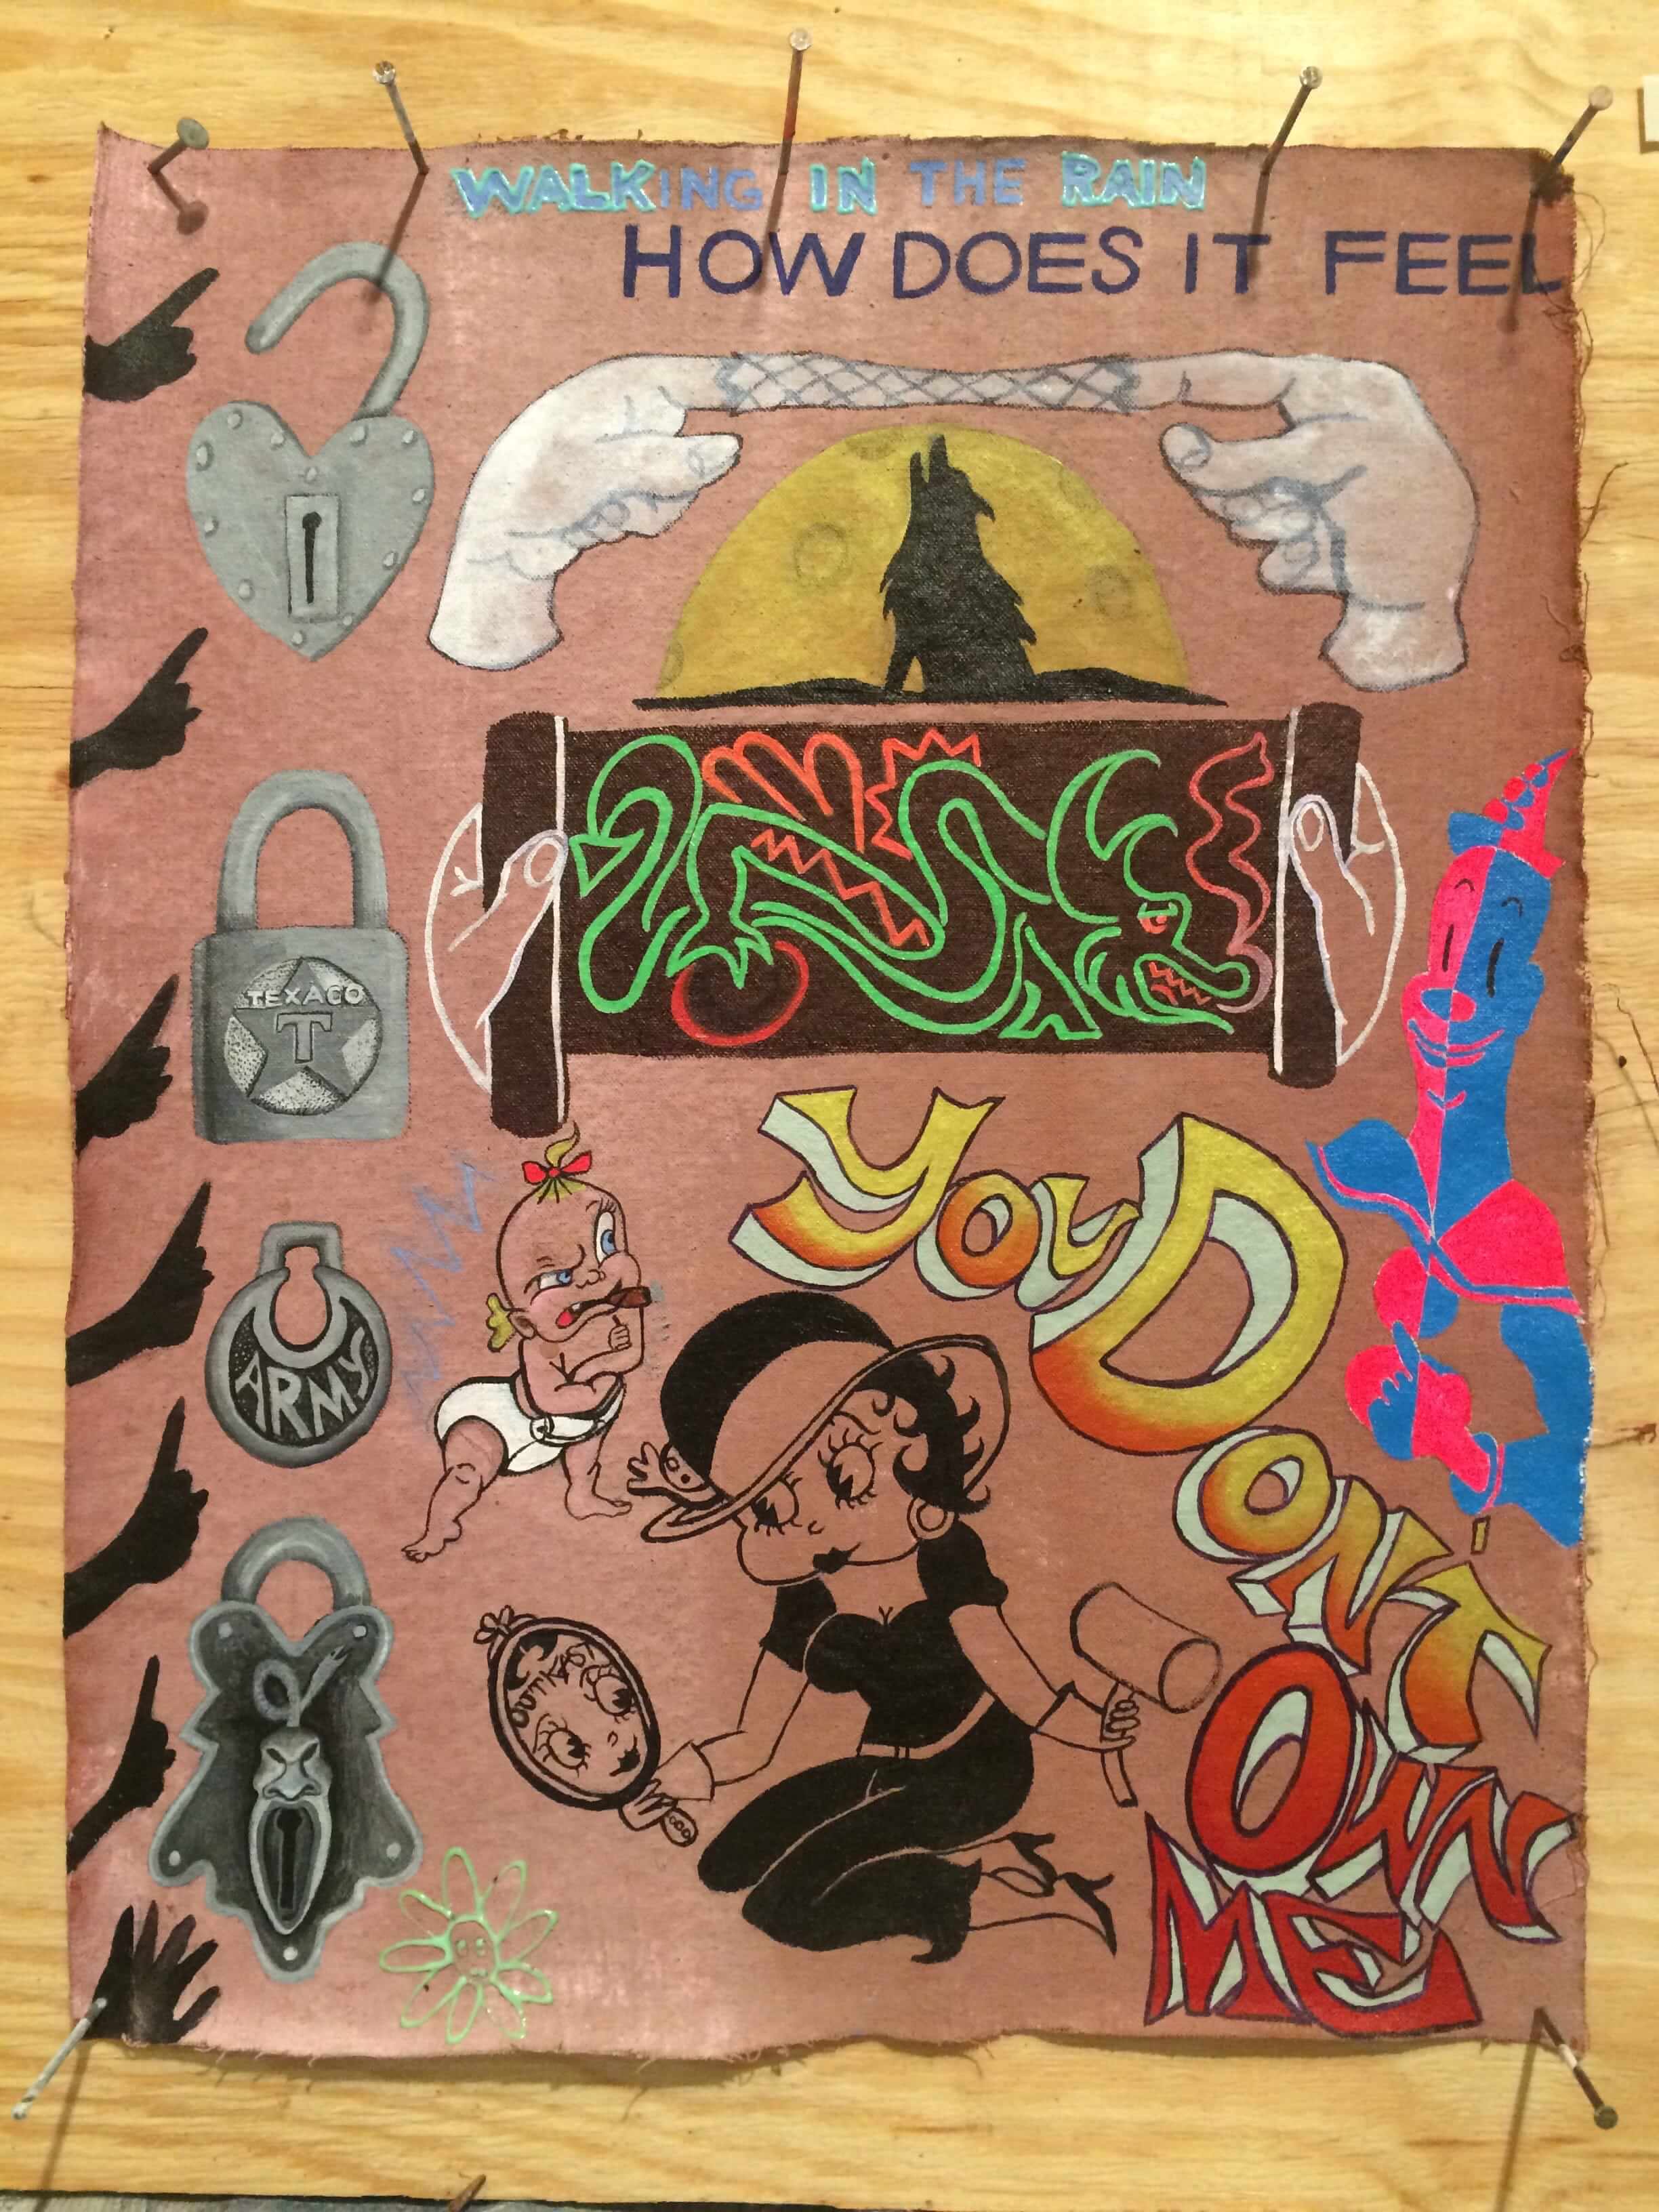 WALKING IN THE RAIN
HOW DOES IT FEEL
TEXACO
T
ARMY
YOU DON'T
OWN
ME
OUTKAST